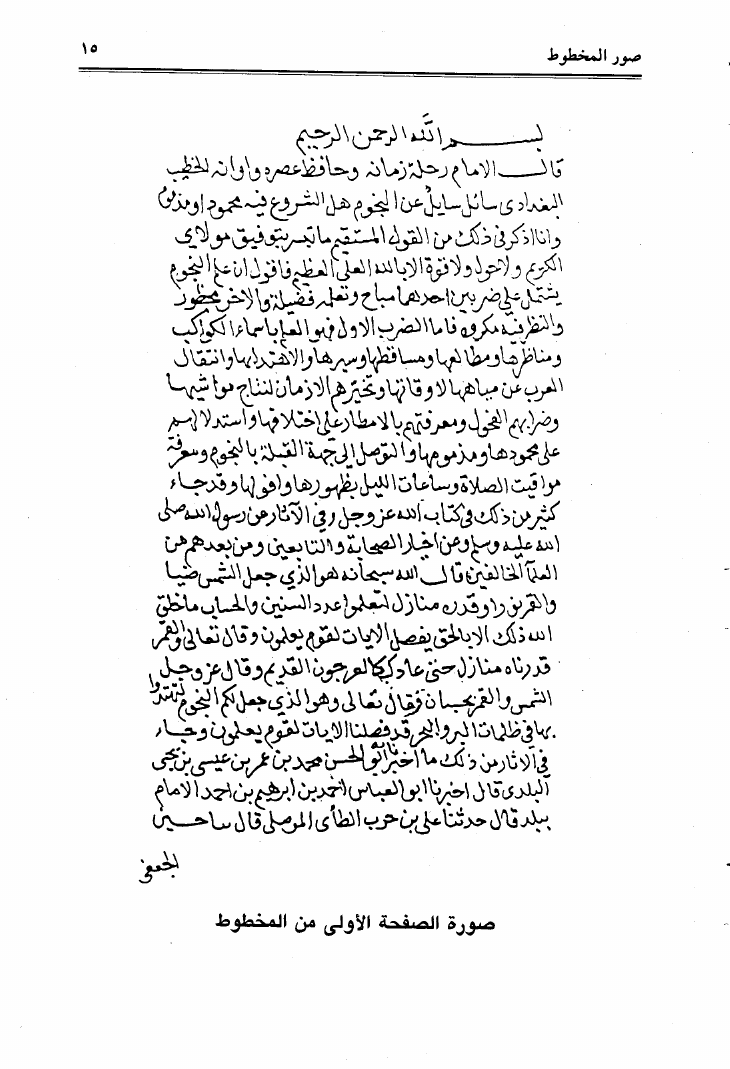 صور المخطوط ١٥
بسم الله الرحمن الرحيم
قال الامام رحلة زمانه وحافظ عصره واوانه الخطيب
البغدادى سائل سايل عن النجوم هل الشروع فيه محمود او مذموم
وانا اذكر فى ذلك من القول المستقيم ما تيسر بتوفيق مولاى
الكريم ولا حول ولا قوة الا بالله العلى العظيم فاقول ان علم النجوم
يشتمل على ضربين احدهما مباح وتعلمه فضيلة والاخر محظور
والنظر فيه مكروه فاما الضرب الاول فهو العلم باسماء الكواكب
ومناظرها ومطالعها ومساقطها وسيرها والاهتداء بها وانتقال
العرب عن مياهها لاوقاتها وتخيرهم الازمان لنتاج مواشيها
وضرابهم الفحول ومعرفتهم بالامطار على اختلافها واستدلالهم
على محمودها ومذمومها والتوصل الى جهة القبلة بالنجوم ومعرفة
مواقيت الصلاة وساعات الليل بظهورها وافولها وقد جاء
كثير من ذلك فى كتاب الله عز وجل وفى الآثار عن رسول الله صلى
الله عليه وسلم وعن اخيار الصحابة والتابعين ومن بعدهم من
العلماء الخالفين قال الله سبحانه هو الذي جعل الشمس ضيا
والقمر نورا وقدره منازل لتعلموا عدد السنين والحساب ما خلق
الله ذلك الا بالحق يفصل الايات لقوم يعلمون وقال تعالى والقمر
قدرناه منازل حتى عاد كالعرجون القديم وقال عز وجل
الشمس والقمر بحسبان وقال تعالى وهو الذي جعل لكم النجوم لتهتدوا
بها فى ظلمات البر والبحر قد فصلنا الايات لقوم يعلمون وجاء
فى الآثار من ذلك ما اخبرنا ابو الحسن محمد بن عمر بن عيسى بن يحيى
البلدى قال اخبرنا ابو العباس احمد بن ابرهيم بن احمد الامام
ببلد قال حدثنا على بن حرب الطائى الموصلى قال سا حسين
الجعفى
صورة الصفحة الأولى من المخطوط